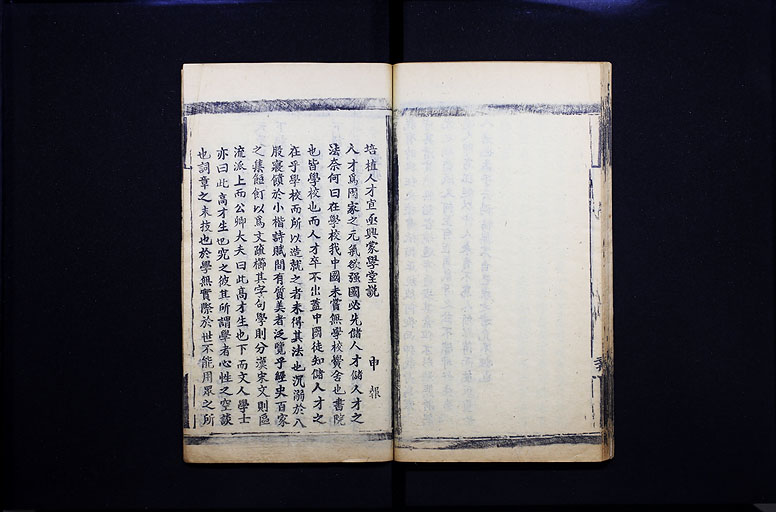 培植人才宜亟興蒙學堂說
申報
人才爲國家之元氣欲强國必先儲人才儲人才之
法奈何曰在學校我中國未嘗無學校黌舍也書院
也皆學校也而人才卒不出蓋中國徒知儲人才之
在乎學校而所以造就之者未得其法也沉溺於八
股寢饋於小楷詩賦間有質美者泛覽乎經史百家
之集餖飣以爲文疏櫛其字句學則分漢宋文則區
流派上而公卿大夫曰此高才生也下而文人學士
亦曰此高才生也究之彼其所謂學者心性之空談
也詞章之末技也於學無實際於世不能用眾之所